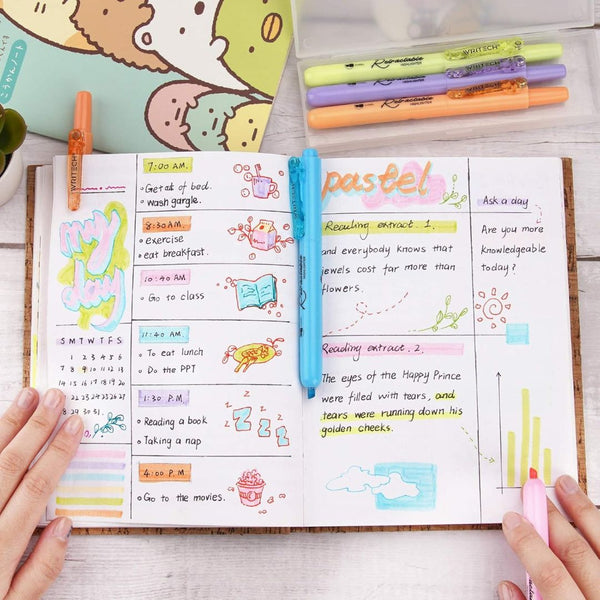 こうかんノート
WRITECH
Retractable
HIGHLIGHTER
WRITECH
Retractable
HIGHLIGHTER
WRITECH
Retractable
HIGHLIGHTER
WRITECH
my
day
S M T W T F S
1 2 3 4 5 6
7 8 9 10 11 12 13
14 15 16 17 18 19 20
22 23 24 25 26 27
29 30 31
7:00 AM.
Get out of bed.
wash gargle.
8:30 AM.
exercise
eat breakfast.
10:40 AM
Go to class
11:40 AM
To eat lunch
Do the PPT
1:30 P.M.
Reading a book
Taking a nap
z Z Z Z z
4:00 P.M
Go to the movies.
Retractable
pastel
Reading extract. 1.
and everybody knows that
jewels cost far more than
flowers.
Reading extract. 2.
The eyes of the Happy Prince
were filled with tears, and
tears were running down his
golden cheeks.
Ask a day
Are you more
knowledgeable
today?